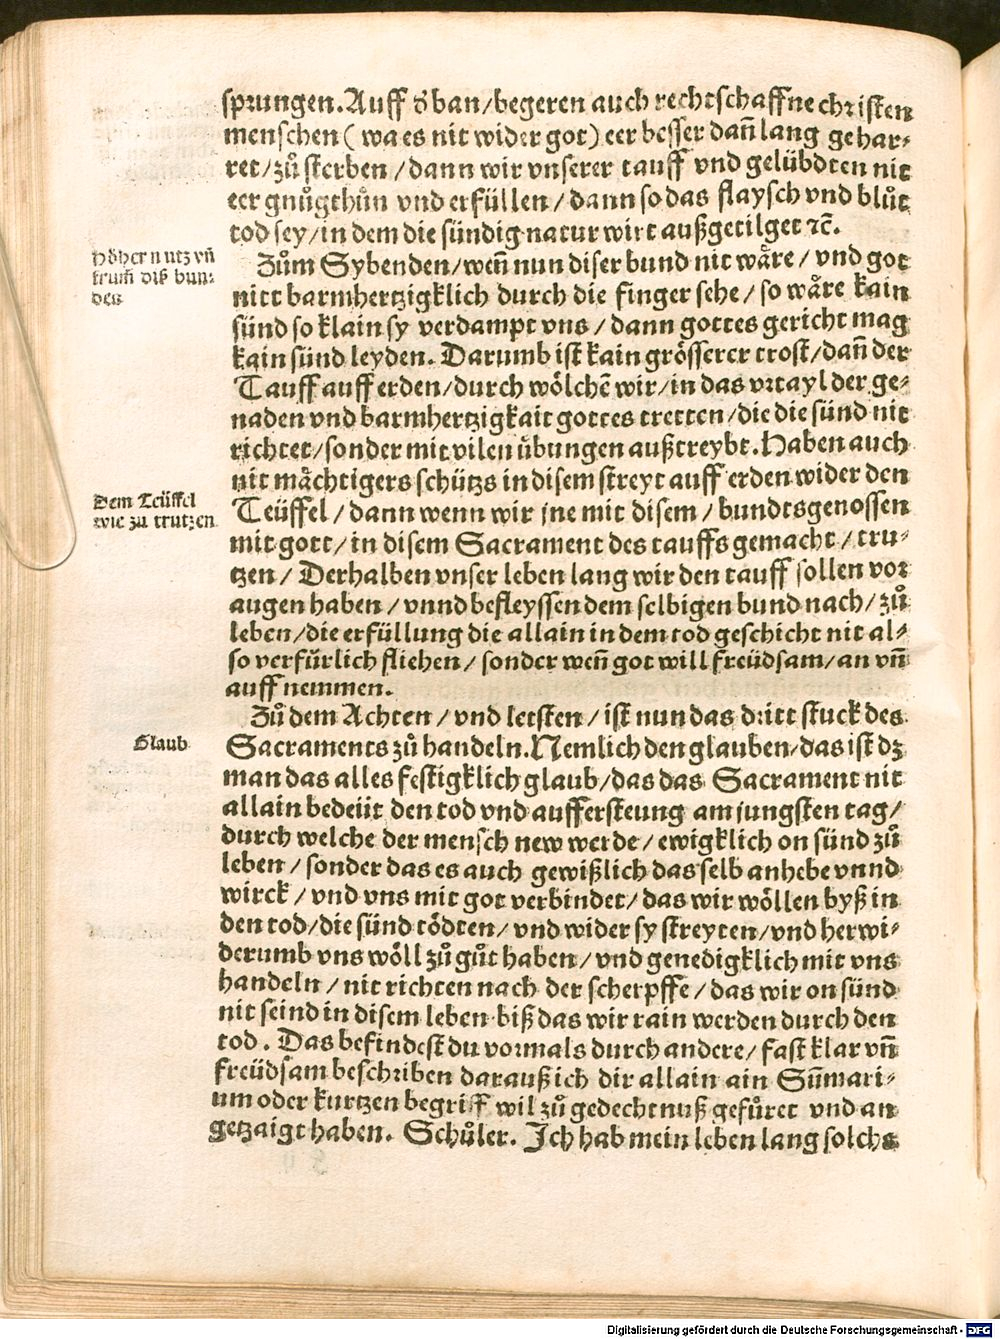 sprungen. Auff d̕ ban / begeren auch rechtschaffne christen
menschen ( wa es nit wider got ) eer besser dañ lang gehar⸗
ret / zuͦ sterben / dann wir vnserer tauff vnd gelübdten nit
eer gnuͦgthuͦn vnd erfüllen / dann so das flaysch vnd bluͦt
tod sey / in dem die sündig natur wirt außgetilget ⁊c̄.
Höher nutz vñ
frum̄ diß bun⸗
des
Zuͦm Sybenden / weñ nun diser bund nit waͤre / vnd got
nitt barmhertzigklich durch die finger sehe / so waͤre kain
sünd so klain sy verdampt vns / dann gottes gericht mag
kain sünd leyden. Darumb ist kain groͤsserer trost / dañ der
Tauff auff erden / durch woͤlchē wir / in das vrtayl der ge⸗
naden vnd barmhertzigkait gottes tretten / die die sünd nit
richtet / sonder mit vilen uͤbungen außtreybt. Haben auch
nit maͤchtigers schützs in disem streyt auff erden wider den
Dem Teüffel
wie zu trutzen
Teüffel / dann wenn wir jne mit disem / bundtsgenossen
mit gott / in disem Sacrament des tauffs gemacht / tru⸗
tzen / Derhalben vnser leben lang wir den tauff sollen vor
augen haben / vnnd befleyssen dem selbigen bund nach / zuͦ
leben / die erfüllung die allain in dem tod geschicht nit al⸗
so verfürlich fliehen / sonder weñ got will freüdsam / an vñ
auff nemmen.
Zuͦ dem Achten / vnd letsten / ist nun das dritt stuck des
Glaub
Sacraments zuͦ handeln. Nemlich den glauben / das ist dz
man das alles festigklich glaub / das das Sacrament nit
allain bedeüt den tod vnd auffersteung am jungsten tag /
durch welche der mensch new werde / ewigklich on sünd zuͦ
leben / sonder das es auch gewißlich das selb anhebe vnnd
wirck / vnd vns mit got verbindet / das wir woͤllen byß in
den tod / die sünd toͤdten / vnd wider sy streyten / vnd herwi⸗
derumb vns woͤll zuͦ guͦt haben / vnd genedigklich mit vns
handeln / nit richten nach der scherpffe / das wir on sünd
nit seind in disem leben biß das wir rain werden durch den
tod . Das befindest du vormals durch andere / fast klar vñ
freüdsam beschriben darauß ich dir allain ain Sum̄mari⸗
um oder kurtzen begriff wil zuͦ gedechtnuß gefuͤret vnd an
getzaigt haben. Schuͦler. Ich hab mein leben lang solchs
Digitalisierung gefördert durch die Deutsche Forschungsgemeinschaft - DFG